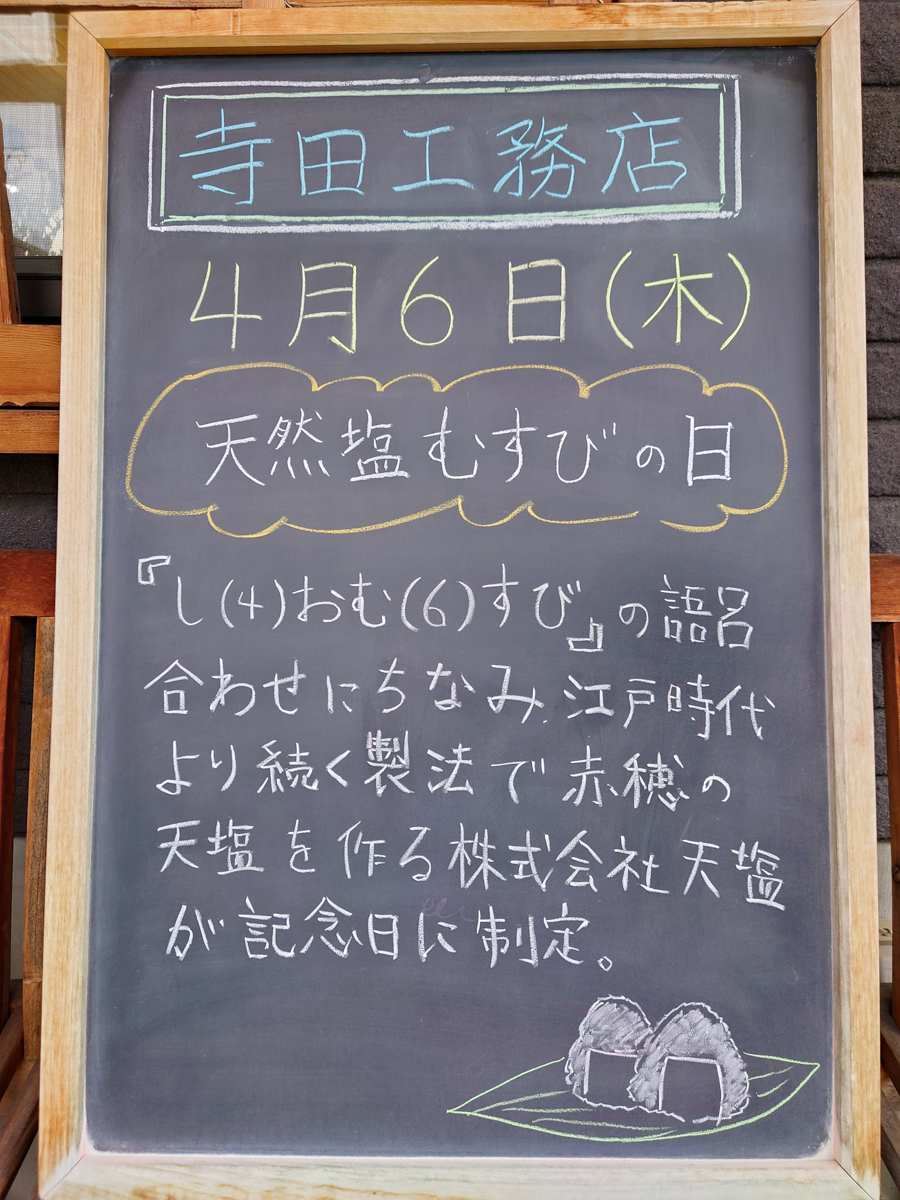 寺田工務店
4月6日(木)
天然塩むすびの日
『し(4)おむ(6)すび』の語呂
合わせにちなみ、江戸時代
より続く製法で赤穂の
天塩を作る株式会社天塩
が記念日に制定。